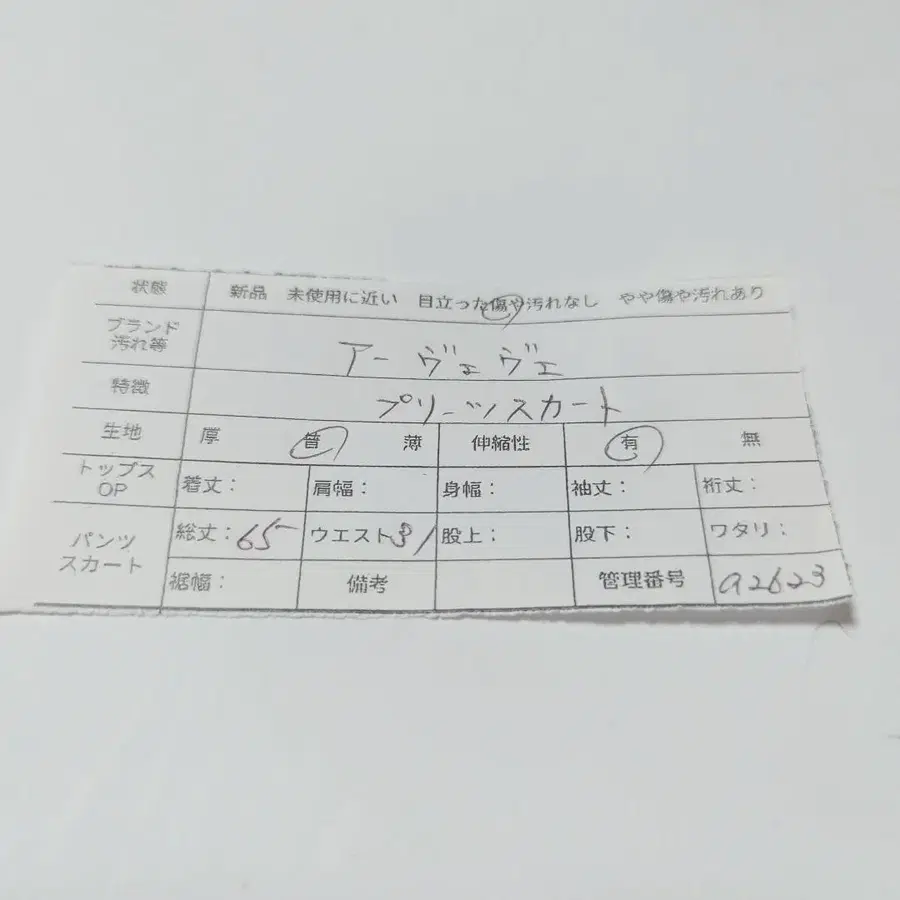 状態 新品 未使用に近い 目立った傷や汚れなし やや傷や汚れあり
ブランド
汚れ等 アーヴェヴェ
特徴 プリーツスカート
生地 厚 普 薄 伸縮性 有 無
トップス
OP 着丈: 肩幅: 身幅: 袖丈: 裄丈:
パンツ
スカート 総丈:65 ウエスト31 股上: 股下: ワタリ:
裾幅: 備考 管理番号 a2623